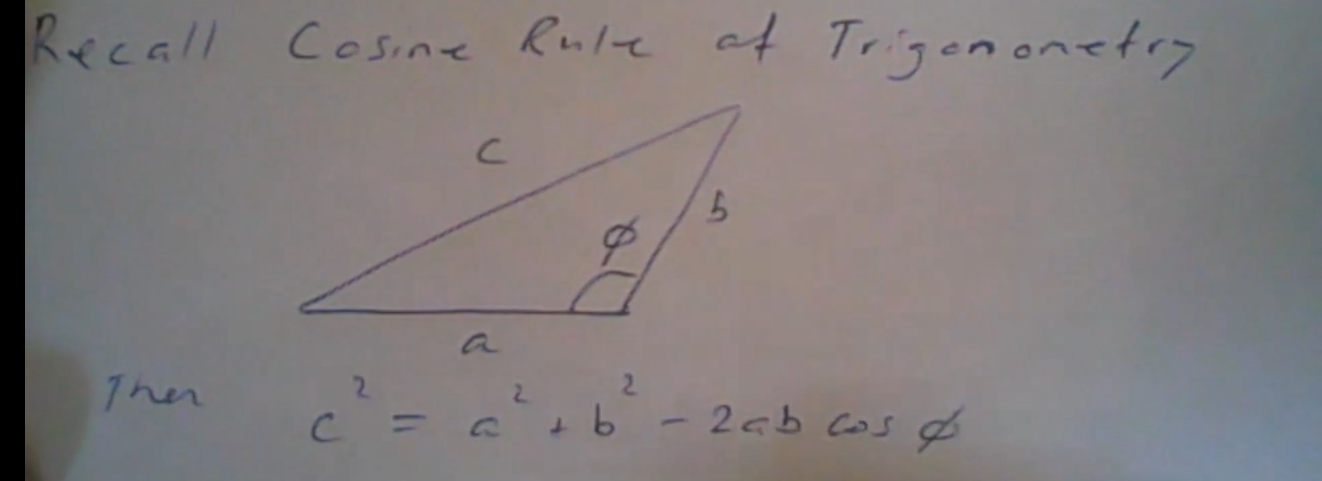 Recall Cosine Rule of Trigonometry
c
b
φ
a
Then c² = a² + b² - 2ab cos φ